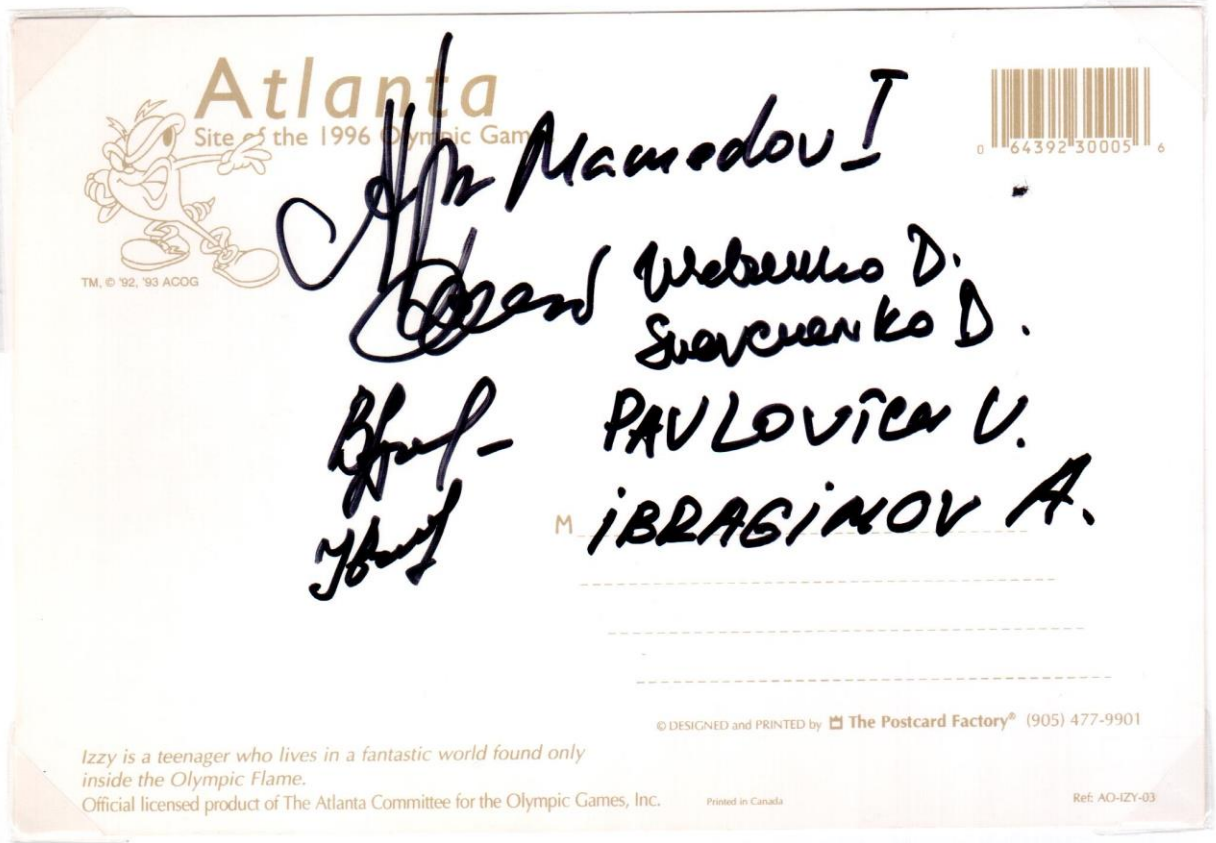 Atlanta
Site of the 1996 Olympic Gam
0 64392 30005 6
TM, © '92, '93 ACOG
Mamedov I
D.
D.
PAVLOVICH V.
M IBRAGIMOV A.
© DESIGNED and PRINTED by The Postcard Factory® (905) 477-9901
Izzy is a teenager who lives in a fantastic world found only
inside the Olympic Flame.
Official licensed product of The Atlanta Committee for the Olympic Games, Inc.
Printed in Canada
Ref: AO-IZY-03